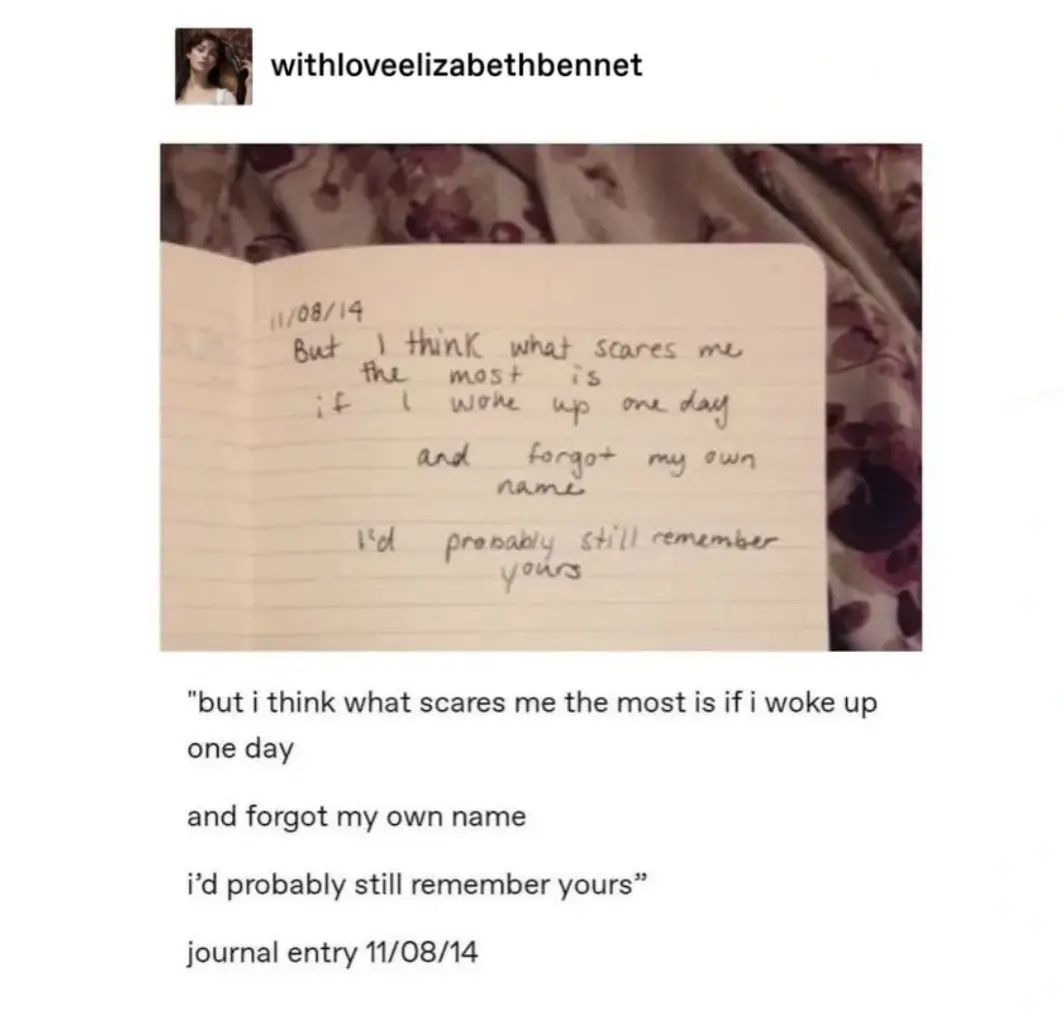 withloveelizabethbennet
11/08/14
But I think what scares me
the most is
if I woke up one day
and forgot my own
name
I'd probably still remember
yours
"but i think what scares me the most is if i woke up
one day
and forgot my own name
i’d probably still remember yours”
journal entry 11/08/14